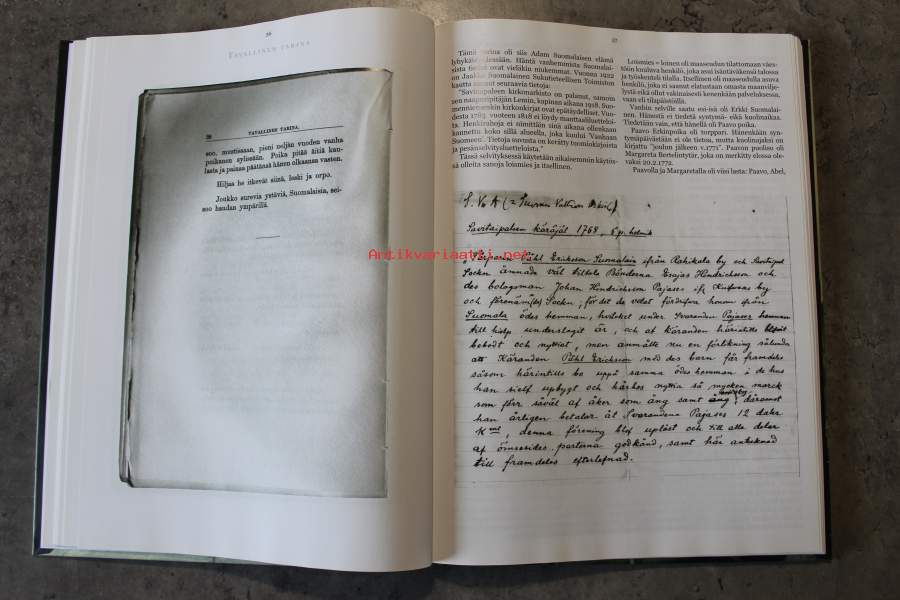 56
TAVALLINEN TARINA
36 TAVALLINEN TARINA.
soo, mustissaan, pieni neljän vuoden vanha
poikanen sylissään. Poika pitää äitiä kau-
lasta ja painaa päätänsä hänen olkaansa vasten.
Hiljaa he itkevät siinä, leski ja orpo.
Joukko surevia ystäviä, Suomalaisia, sei-
soo haudan ympärillä.
57
Tämä tarina oli siis Adam Suomalaisen elämä
lyhykäisyydessään. Häntä vanhemmista Suomalai-
sista tiedot ovat vieläkin niukemmat. Vuonna 1922
on Jaakko Suomalainen Sukutieteellisen Toimiston
kautta saanut seuraavia tietoja:
"Savitaipaleen kirkonarkisto on palanut, samoin
sen naapuripitäjän Lemin, kapinan aikana 1918. Suo-
menniemenkin kirkonkirjat ovat epätäydelliset. Vuo-
desta 1763 vuoteen 1818 ei löydy manttaaliluettelo-
ita. Henkirahoja ei nimittäin sinä aikana ollenkaan
kannettu koko sillä alueella, joka kuului 'Vanhaan
Suomeen'. Tietoja suvusta on kerätty tuomiokirjoista
ja pesänselvitysluetteloista."
Tässä selvityksessä käytetään aikaisemmin käytös-
sä olleita sanoja loismies ja itsellinen.
Loismies = loinen oli maaseudun tilattomaan väes-
töön kuuluva henkilö, joka asui isäntäväkensä talossa
ja työskenteli tilalla. Itsellinen oli maaseudulla asuva
henkilö, joka ei saanut elatustaan omasta maanvilje-
lystä eikä ollut vakinaisesti kenenkään palveluksessa,
vaan eli tilapäistöillä.
Vanhin selville saatu esi-isä oli Erkki Suomalai-
nen. Hänestä ei tiedetä syntymä- eikä kuolinaikaa.
Tiedetään vain, että hänellä oli Paavo poika.
Paavo Erkinpoika oli torppari. Hänenkään syn-
tymäpäivästään ei ole tietoa, mutta kuolinajaksi on
kirjattu "joulun jälkeen v.1771". Paavon puoliso oli
Margareta Bertelintytär, joka on merkitty elossa ole-
vaksi 20.2.1772.
Paavolla ja Margaretalla oli viisi lasta: Paavo, Abel,
S. V. A (= Suomen Valtion Arkisto)
Savitaipaleen käräjät 1768
Torparen Påhl Ericksson Suomalain ifrån Rahikala by och
Socken ämnade väl tilltala Bönderna Erajas Hindrichsson och
des bolagsman Johan Hindrichsson Pajases ifr. by
och förenämndes Socken, för det de velat fördrifva honom ifrån
Suomala ödes hemman, hvilcket under Svaranden Pajases hemman
till hielp underslagit är, och af käranden härintills
bebodt och nyttiet, men anmälte nu en förlikning sålunda
att Käranden Påhl Ericksson med des barn får framdeles
såsom härintills bo uppå samma ödes hemman i de hus
han sielf upbygt och härhos nyttia så mycken marck
som förr såväl af åker som äng samt äng, däremot
han årligen betalar åt Svarandena Pajases 12 daler
Kmt, denna förening blef uplöst och till alle delar
af ömsesides parterna godkänd, samt här antecknad
till framdeles efterlefnad.
Antikvariaatti.net